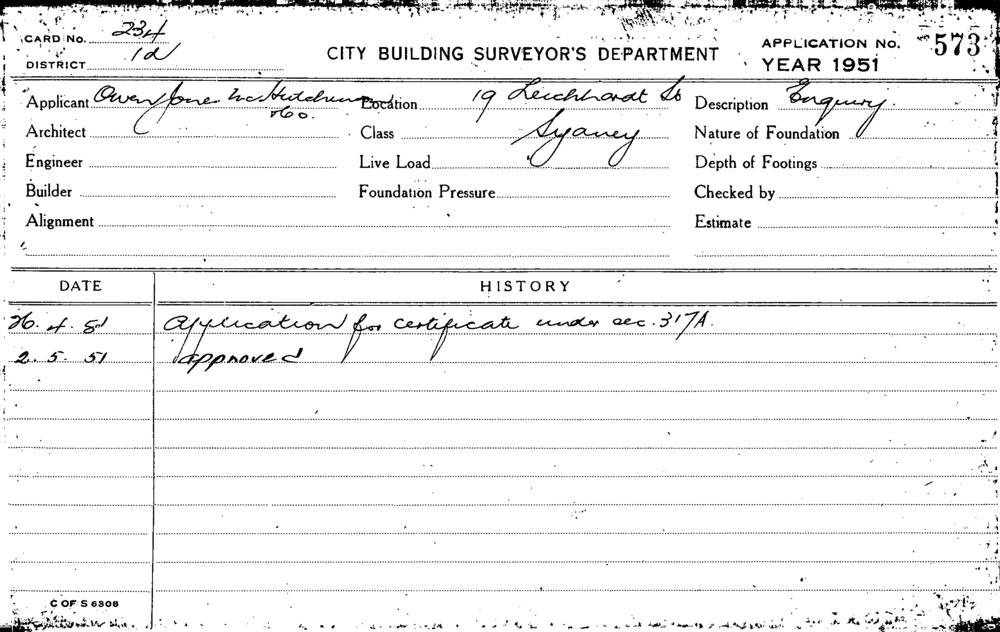 CARD NO. 234
DISTRICT 1d
CITY BUILDING SURVEYOR'S DEPARTMENT
APPLICATION NO. 573
YEAR 1951
Applicant Owen Jones McHutchison
& Co.
Location 19 Leichhardt St
Description Enquiry.
Architect
Class Sydney
Nature of Foundation
Engineer
Live Load
Depth of Footings
Builder
Foundation Pressure
Checked by
Alignment
Estimate
DATE HISTORY
26. 4. 51 Application for certificate under sec. 317A.
2. 5. 51 approved
C OF S 6308